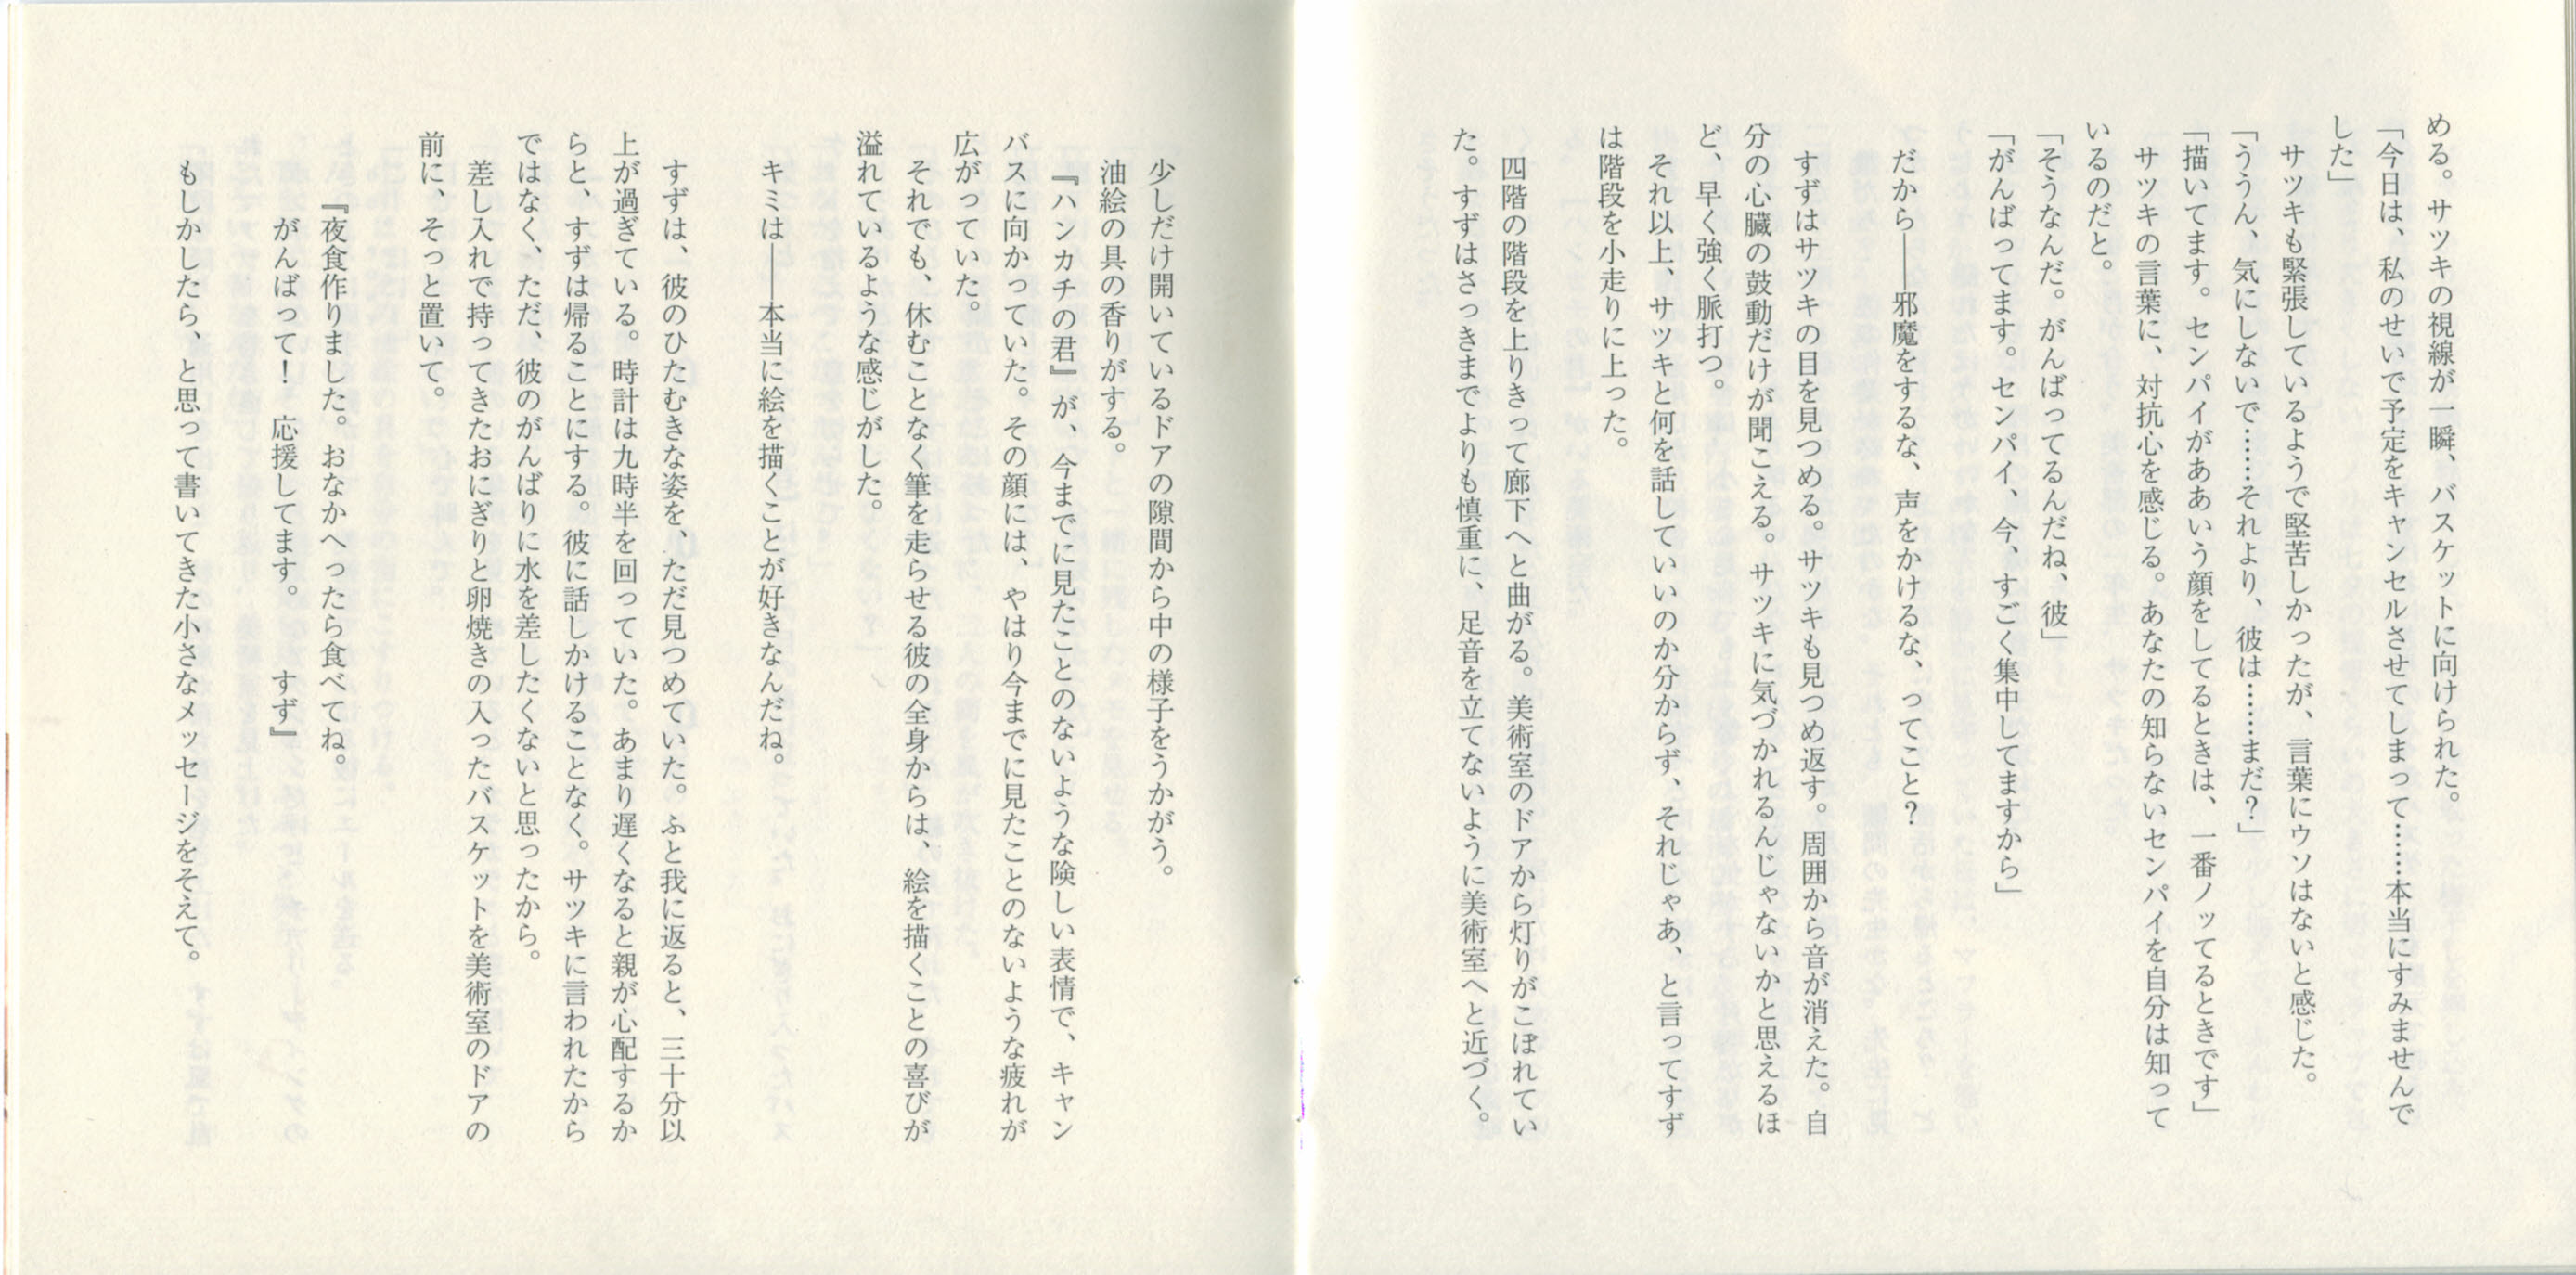 める。サツキの視線が一瞬、バスケットに向けられた。
「今日は、私のせいで予定をキャンセルさせてしまって……本当にすみませんで
した」
サツキも緊張しているようで堅苦しかったが、言葉にウソはないと感じた。
「ううん、気にしないで……それより、彼は……まだ？」
「描いてます。センパイがああいう顔をしてるときは、一番ノッてるときです」
サツキの言葉に、対抗心を感じる。あなたの知らないセンパイを自分は知って
いるのだと。
「そうなんだ。がんばってるんだね、彼」
「がんばってます。センパイ、今、すごく集中してますから」
だから――邪魔をするな、声をかけるな、ってこと？
すずはサツキの目を見つめる。サツキも見つめ返す。周囲から音が消えた。自
分の心臓の鼓動だけが聞こえる。サツキに気づかれるんじゃないかと思えるほ
ど、早く強く脈打つ。
それ以上、サツキと何を話していいのか分からず、それじゃあ、と言ってすず
は階段を小走りに上った。
四階の階段を上りきって廊下へと曲がる。美術室のドアから灯りがこぼれてい
た。すずはさっきまでよりも慎重に、足音を立てないように美術室へと近づく。
少しだけ開いているドアの隙間から中の様子をうかがう。
油絵の具の香りがする。
『ハンカチの君』が、今までに見たことのないような険しい表情で、キャン
バスに向かっていた。その顔には、やはり今までに見たことのないような疲れが
広がっていた。
それでも、休むことなく筆を走らせる彼の全身からは、絵を描くことの喜びが
溢れているような感じがした。
キミは――本当に絵を描くことが好きなんだね。
すずは、彼のひたむきな姿を、ただ見つめていた。ふと我に返ると、三十分以
上が過ぎている。時計は九時半を回っていた。あまり遅くなると親が心配するか
らと、すずは帰ることにする。彼に話しかけることなく。サツキに言われたから
ではなく、ただ、彼のがんばりに水を差したくないと思ったから。
差し入れで持ってきたおにぎりと卵焼きの入ったバスケットを美術室のドアの
前に、そっと置いて。
『夜食作りました。おなかへったら食べてね。
がんばって！　応援してます。　　すず』
もしかしたら、と思って書いてきた小さなメッセージをそえて。